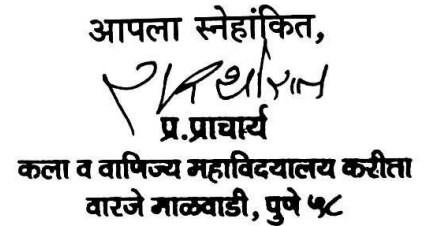 आपला स्नेहांकित,
प्र.प्राचार्य
कला व वाणिज्य महाविदयालय करीता
वारजे माळवाडी, पुणे ५८